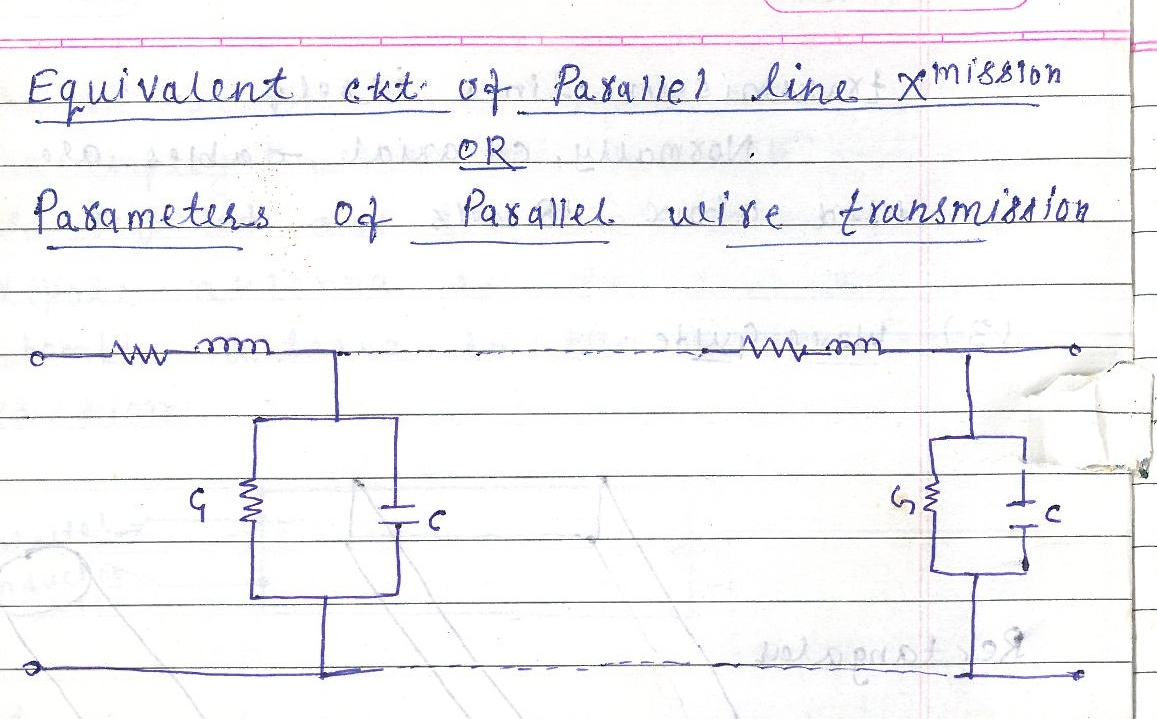 Equivalent ckt. of Parallel line Xmission
OR
Parameters of Parallel wire transmission
G C G C